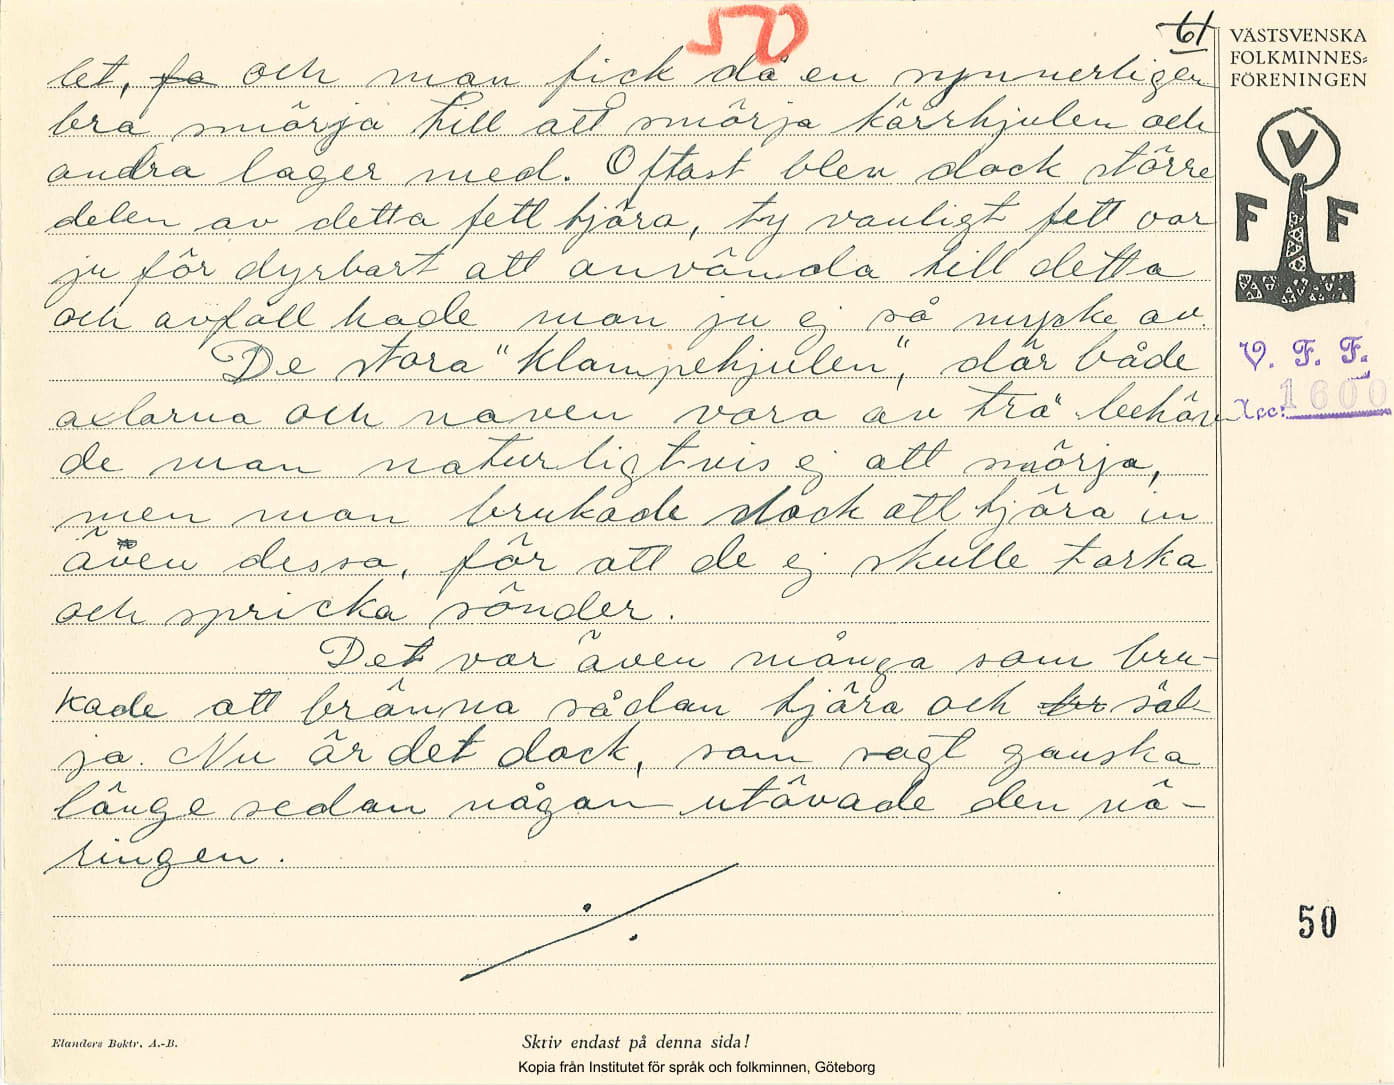 50
61
VÄSTSVENSKA
FOLKMINNES-
FÖRENINGEN
V
F F
V. F. F.
Acc: 1600
let, fa och man fick då en synnerligen
bra smörja till att smörja kärrhjulen och
andra lager med. Oftast blev dock större
delen av detta fett tjära, ty vanligt fett var
ju för dyrbart att använda till detta
och avfall hade man ju ej så mycke av.
De stora "klampehjulen", där både
axlarna och naven voro av trä behöv
de man naturligtvis ej att smörja,
men man brukade dock att tjära in
även dessa, för att de ej skulle torka
och spricka sönder.
Det var även många som bru-
kade att bränna sådan tjära och säl-
ja. Nu är det dock, som sagt ganska
länge sedan någon utövade den nä-
ringen.
50
Elanders Boktr. A.-B.
Skriv endast på denna sida!
Kopia från Institutet för språk och folkminnen, Göteborg